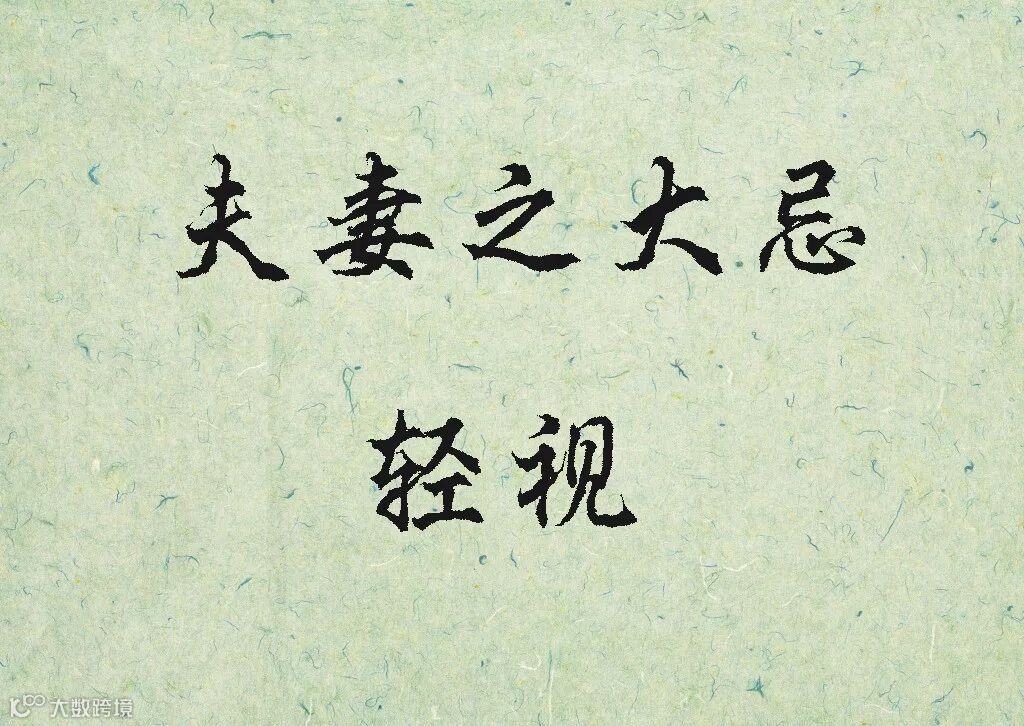 夫妻之大忌
轻视
大数跨境